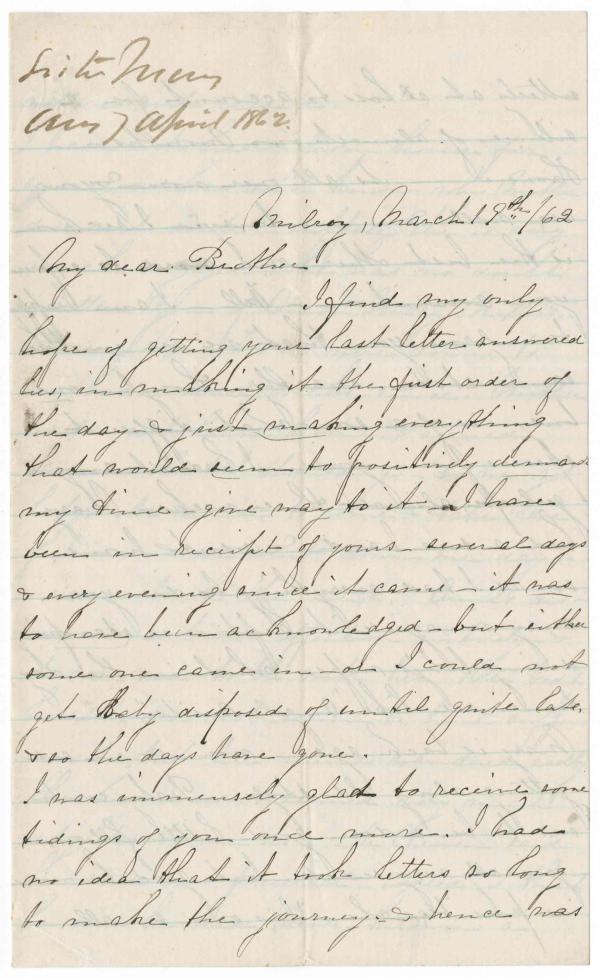 Sister Mary
Ans) April 1862.
Milroy, March 19th/62
My dear Brother
I find my only
hope of getting your last letter answered
lies, in making it the first order of
the day - & just making everything
that would seem to positively demand
my time - give way to it - I have
been in receipt of yours - several days
& every evening since it came - it was
to have been acknowledged - but either
some one came in - or I could not
get Baby disposed of until quite late.
& so the days have gone.
I was immensely glad to receive some
tidings of you once more. I had
no idea that it took letters so long
to make the journey. & hence was